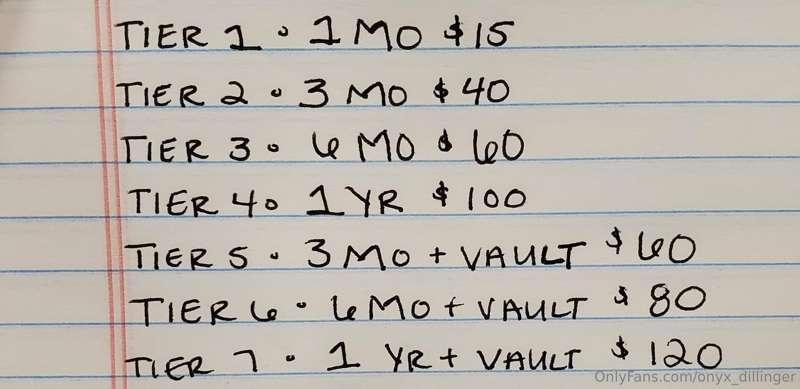 TIER 1 • 1 MO $15
TIER 2 • 3 MO $40
TIER 3 • 6 MO $60
TIER 4 • 1 YR $100
TIER 5 • 3 MO + VAULT $60
TIER 6 • 6 MO + VAULT $80
TIER 7 • 1 YR + VAULT $120
OnlyFans.com/onyx_dillinger